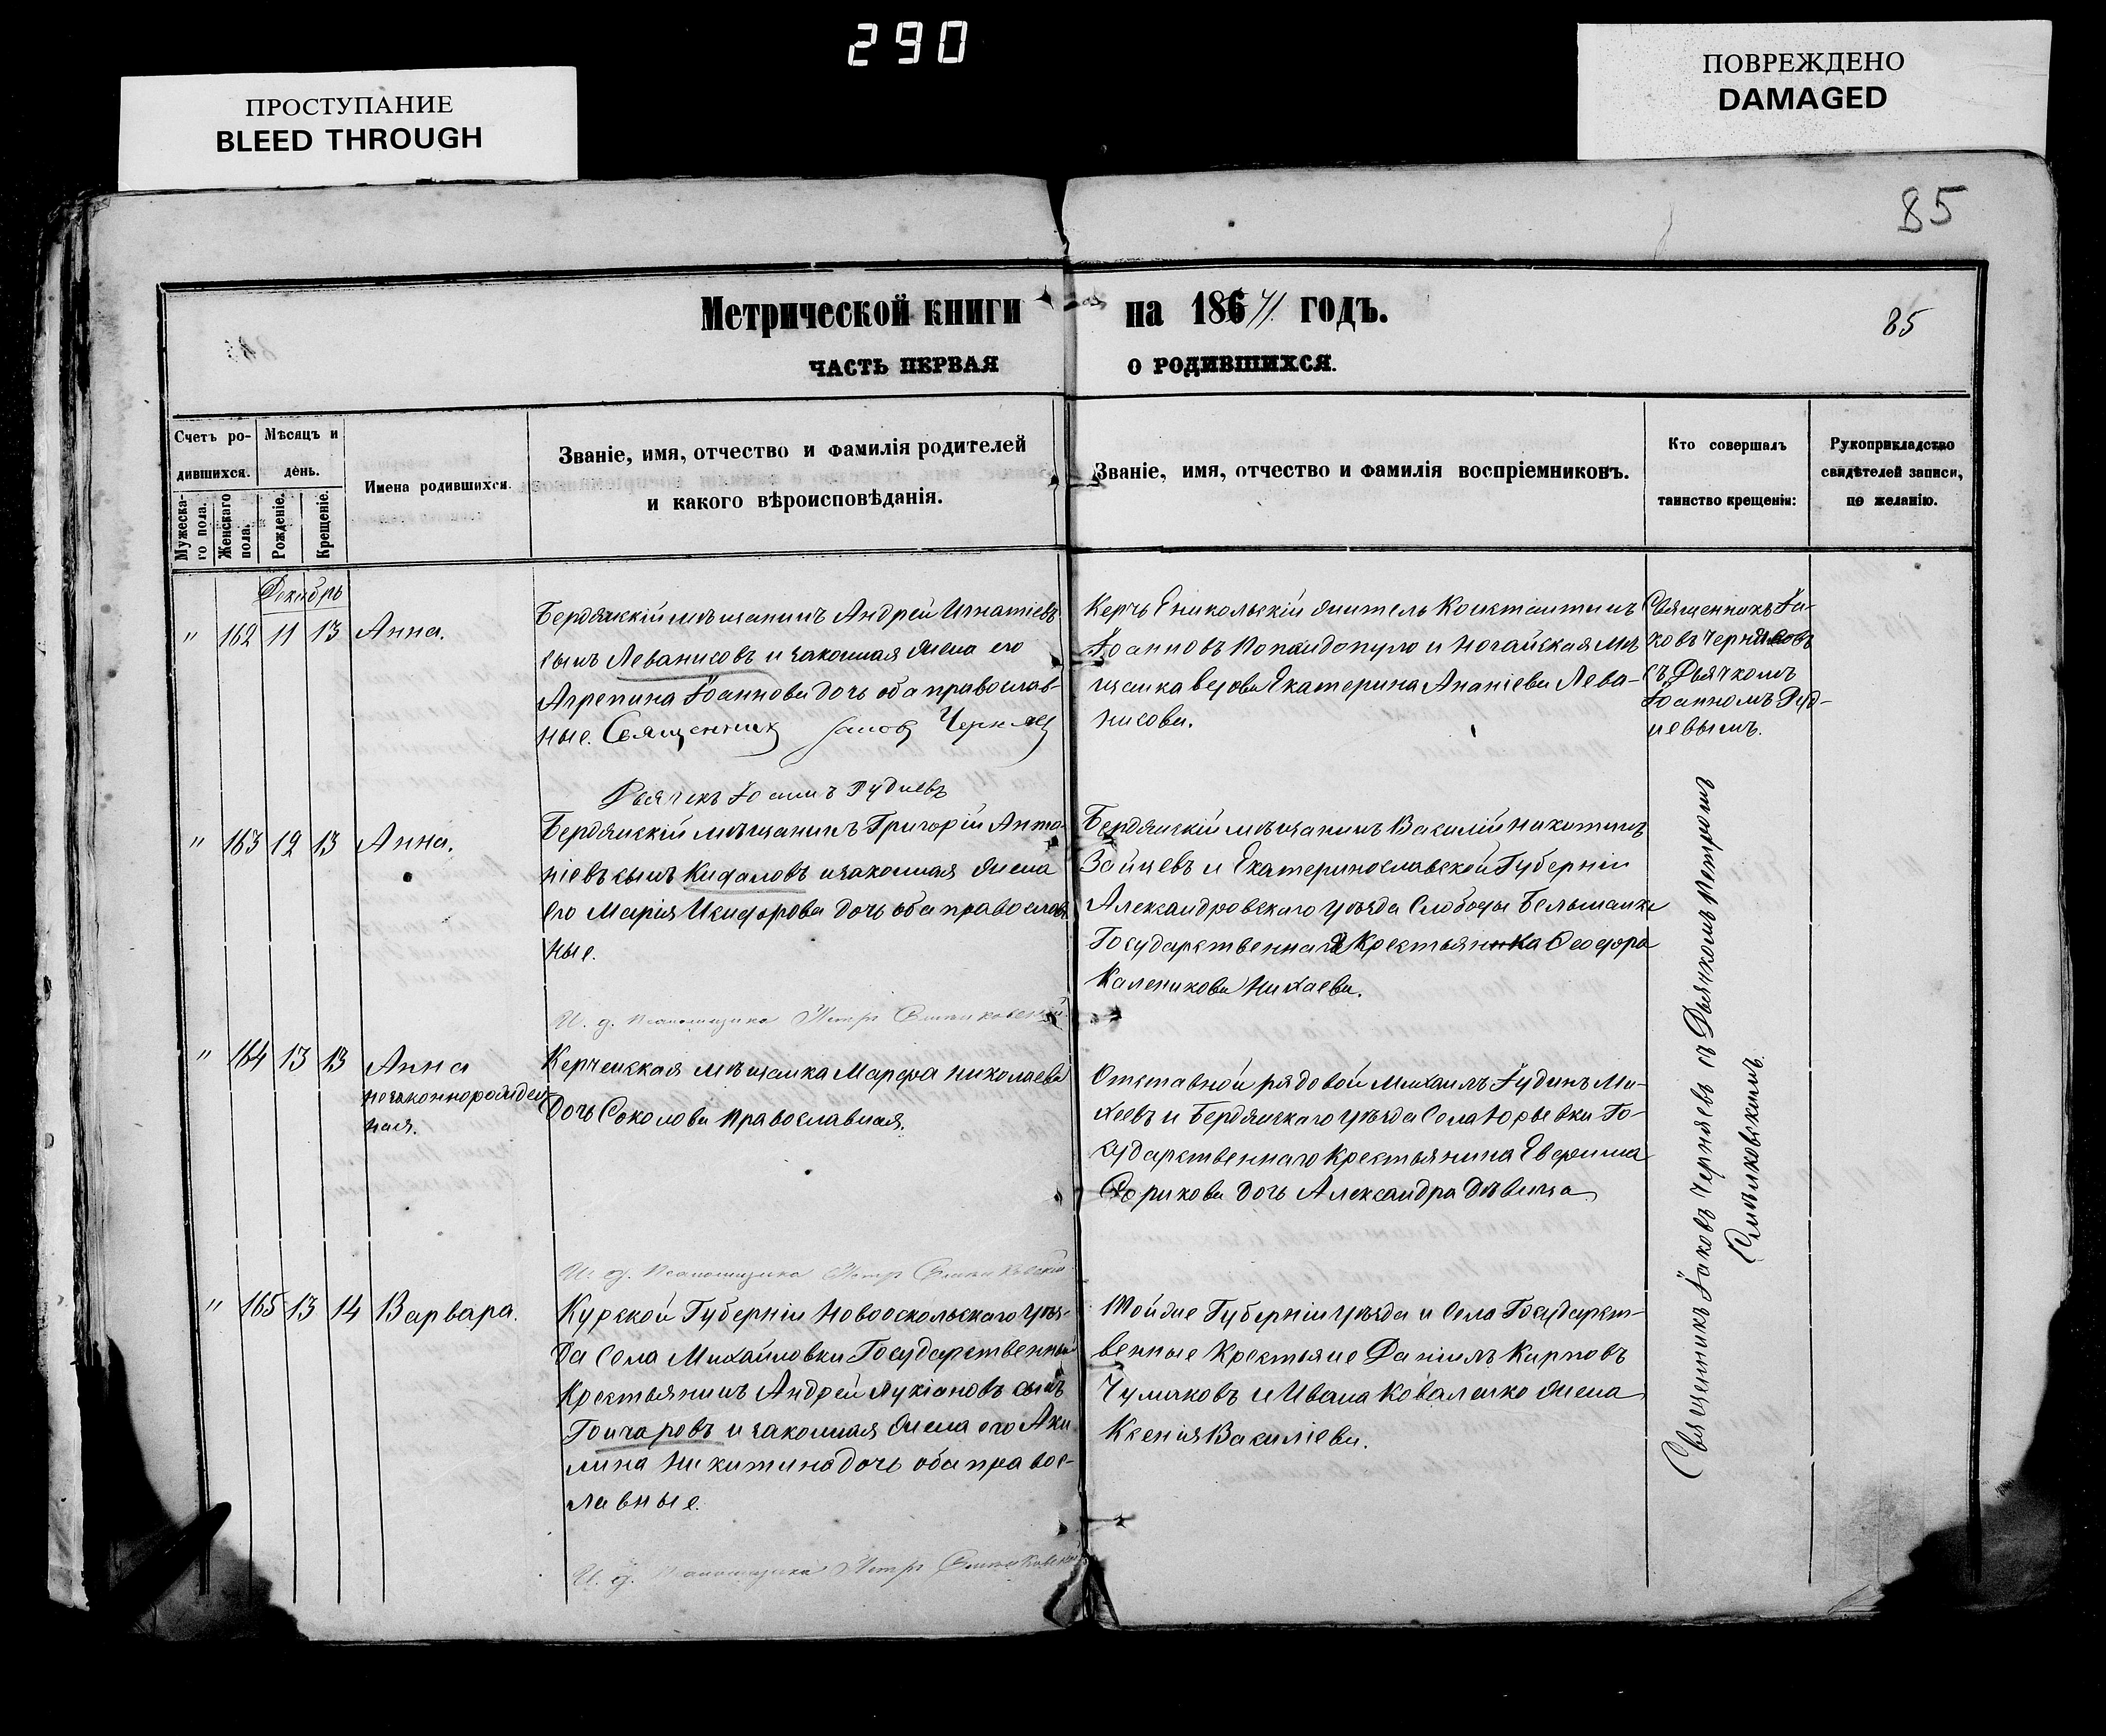 290
ПРОСТУПАНИЕ
BLEED THROUGH
ПОВРЕЖДЕНО
DAMAGED
85
Метрической книги на 18671 годъ.
85
ЧАСТЬ ПЕРВАЯ О РОДИВШИХСЯ.
Счетъ ро-
дившихся.
Мужеска-
го пола.
Женскаго
пола.
Мѣсяцъ и
день.
Рожденіе.
Крещеніе.
Имена родившихся.
Званіе, имя, отчество и фамилія родителей
и какого вѣроисповѣданія.
Званіе, имя, отчество и фамилія воспріемниковъ.
Кто совершалъ
таинство крещенія:
Рукоприкладство
свидѣтелей записи,
по желанію.
Декабрь
" 162 11 13 Анна.
Бердянскій мѣщанинъ Андрей Игнатіевъ
сынъ Леванисовъ и законная жена его
Агрепина Іоаннова дочь оба православ-
ные. Священникъ Іаковъ Черняев
Дьячекъ Іоаннъ Рудневъ
Керчь Еникольскій житель Константинъ
Іоанновъ Попандопуло и Ногайская мѣ
щанка вдова Екатерина Ананіева Лева-
нисова.
Священникъ Іа-
ковъ Черняевъ
съ Дьячкомъ
Іоанномъ Руд-
невымъ.
" 163 12 13 Анна.
Бердянскій мѣщанинъ Григорій Анто-
ніевъ сынъ Кифаловъ и законная жена
Его Марія Исидорова дочь оба православ
ные.
И. д. псаломщика Петръ
Бердянскій мѣщанинъ Василій Никитинъ
Зайцевъ и Екатеринославской Губерніи
Александровскаго уѣзда Слободы Бельманки
Государственная Крестьянка Феодора
Каленикова Нихаева.
" 164 13 13 Анна
незаконнорожден
ная.
Керченская мѣщанка Марфа Николаева
Дочь Соколова православная.
И. д. псаломщика Петръ
Отставной рядовой Михаилъ Іудинъ Ми-
хеевъ и Бердянскаго уѣзда Села Юрьевки Го-
сударственнаго Крестьянина Евфима
Форикова дочь Александра дѣвица
" 165 13 14 Варвара.
Курской Губерніи Новооскольскаго уѣз-
да Села Михайловки Государственный
Крестьянинъ Андрей Лукіановъ сынъ
Гончаровъ и законная жена его Аки
лина Никитина дочь оба правос-
лавные.
И. д. псаломщика Петръ
Тойже Губерніи уѣзда и Села Государст-
венные Крестьяне Даніилъ Карповъ
Чумаковъ и Ивана Коваленко жена
Ксенія Василіева.
Священникъ Іаковъ Черняевъ съ Дьячкомъ Петромъ